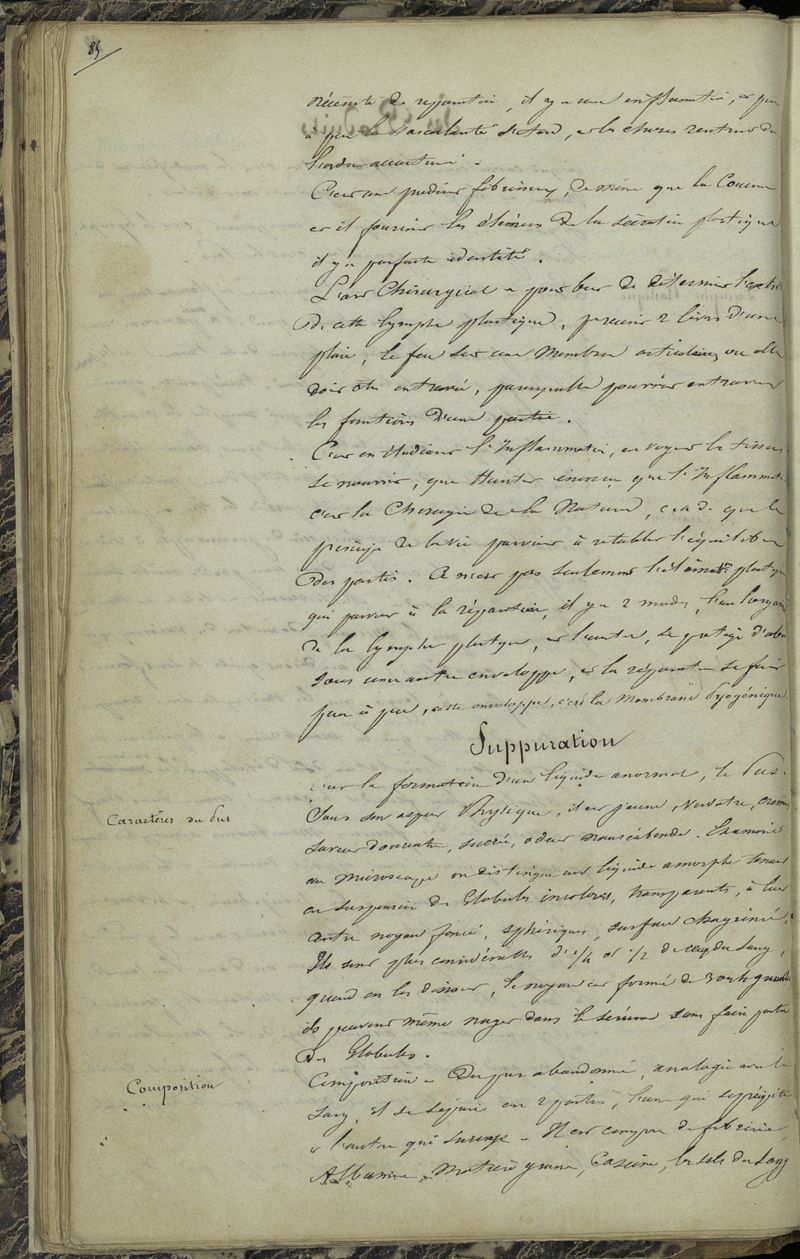 85
nécessité de réparation, il y a une inflammation, et peu
à peu la vascularité s'étend, et les choses rentrent dans
l'ordre accoutumé.
C'est un produit fibrineux, de même que la Couenne
et il fournit les éléments de la sécrétion plastique
il y a parfaite identité.
L'art Chirurgical a pour but de déterminer
de cette lymphe plastique, réunir 2 lèvres d'une
plaie, le feu sur une Membrane articulaire, ou elle
doit être entravée, parcequ'elle pourrait entraver
les fonctions d'une partie.
C'est en étudiant l'Inflammation, en voyant les tissus
se nourrir, que Hunter énonça que l'Inflammation
c'est la Chirurgie de la Nature, c.a.d. que le
principe de la vie parvient à rétablir l'équilibre
des parties. Ce n'est pas seulement l'élément plastique
qui parvient à la réparation, il y a 2 modes, l'un
de la lymphe plastique, et l'autre, se protège d'abord
sous une autre enveloppe, et la réparation se fait
peu à peu, cette enveloppe, c'est la Membrane Pyogénique.
Suppuration
c'est la formation d'un liquide anormal, le Pus.
Caractères du Pus
Sous son aspect Physique, il est jaune, verdâtre, crémeux
saveur douceâtre, sucrée, odeur nauséabonde. Examiné
au microscope on distingue un liquide amorphe tenant
en suspension des Globules incolores, transparents, à leur
centre noyau foncé, sphériques, surface chagrinée.
Ils sont plus considérables d'1/4 et 1/2 de ceux du Sang,
quand on les dissout, le noyau est formé de 3 ou 4
ils peuvent même nager dans le serum sans faire partie
des Globules.
Composition
Composition - Du pus abandonné, analogie avec le
Sang, il se sépare en 2 parties, l'une qui se précipite
et l'autre qui surnage - Il est composé de fibrine,
Albumine, Matière grasse, Caséine, les sels du Sang